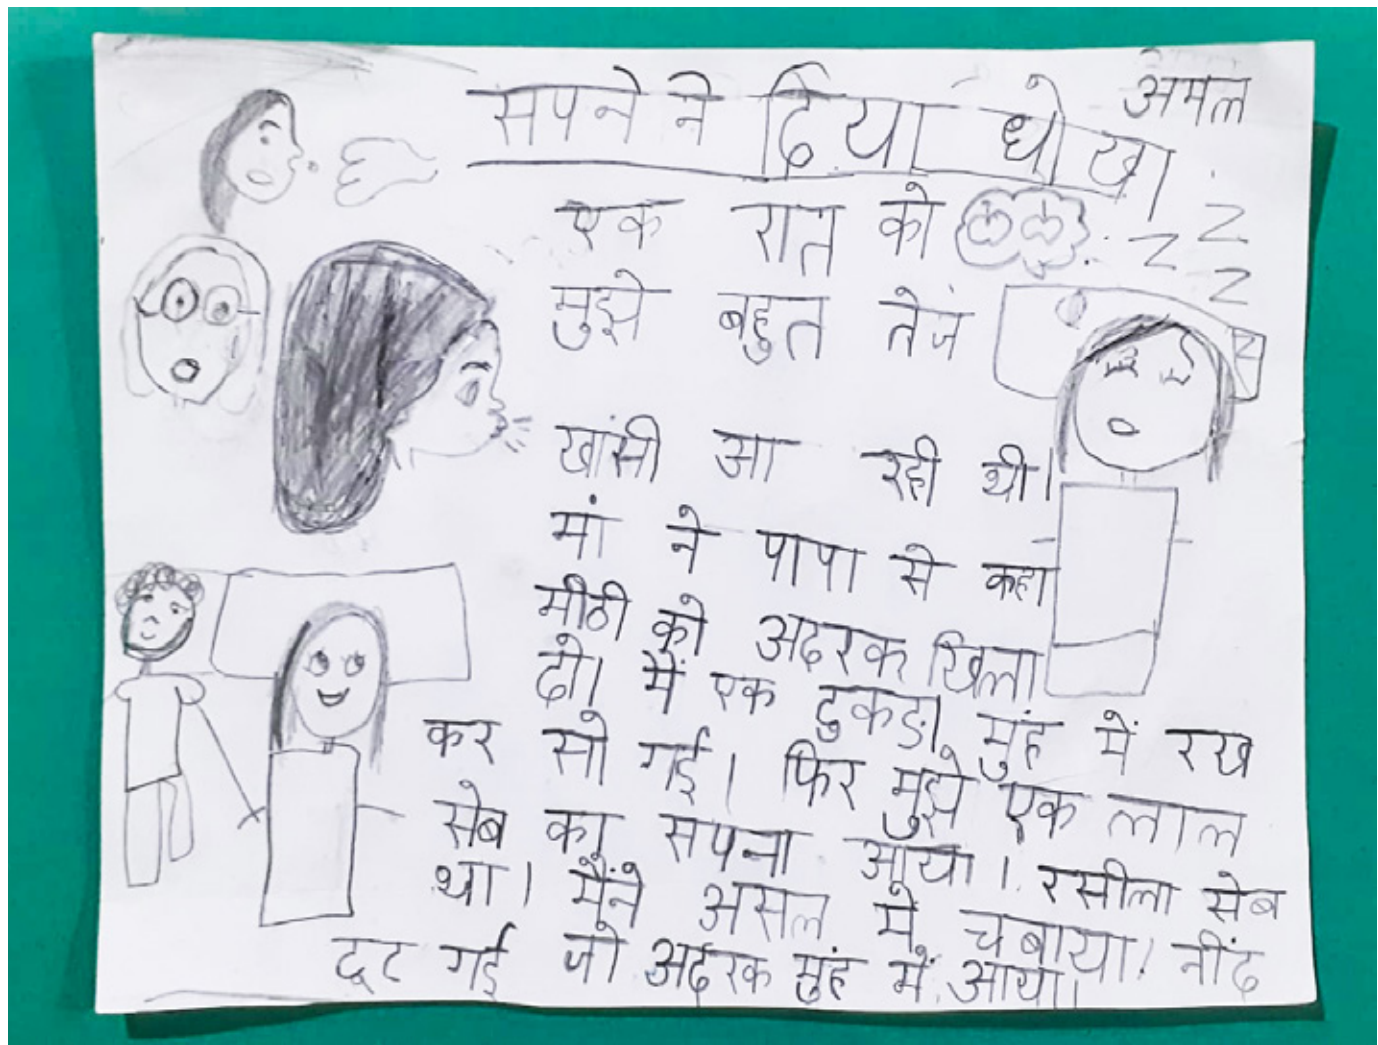 अमल
सपने ने दिया धोखा
एक रात को
z z z
मुझे बहुत तेज
खांसी आ रही थी।
मां ने पापा से कहा
मीठी को अदरक खिला
दो। मैं एक टुकड़ा मुंह में रख
कर सो गई। फिर मुझे एक लाल
सेब का सपना आया। रसीला सेब
था। मैंने असल में चबाया। नींद
टूट गई जो अदरक मुंह में आया।